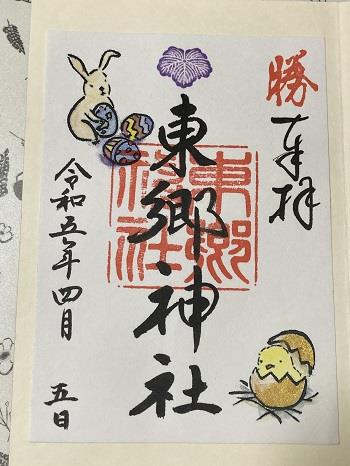 勝
奉拝
東郷神社
東郷神社
令和五年四月
五日